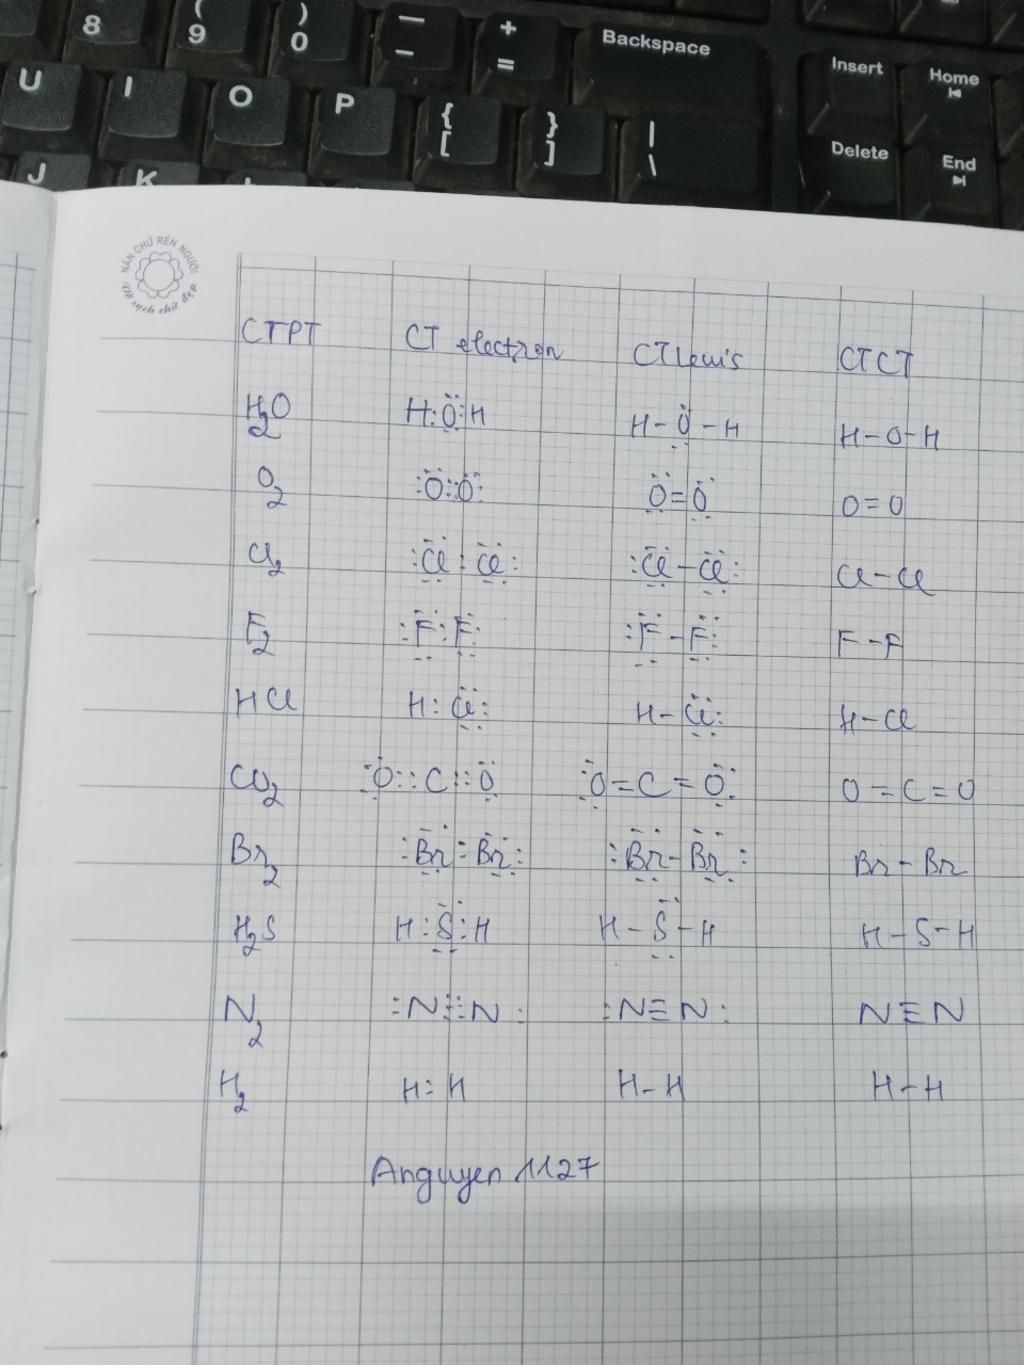 8 ( 9 ) 0 — – + = Backspace Insert Home
U I O P { [ } ] | \ Delete End
J K L
NÂN CHỮ RÈN NGƯỜI
Vở sạch chữ đẹp
CTPT CT electron CT Lewis CTCT
H2O H:Ö:H H-Ö-H H-O-H
O2 :Ö::Ö: Ö=Ö O=O
Cl2 :Cl:Cl: :Cl-Cl: Cl-Cl
F2 :F:F: :F-F: F-F
HCl H:Cl: H-Cl: H-Cl
CO2 :O::C::O O=C=O: O=C=O
Br2 :Br:Br: :Br-Br: Br-Br
H2S H:S:H H-S-H H-S-H
N2 :N⫶⫶N: :N≡N: N≡N
H2 H:H H-H H-H
Anguyen 1127